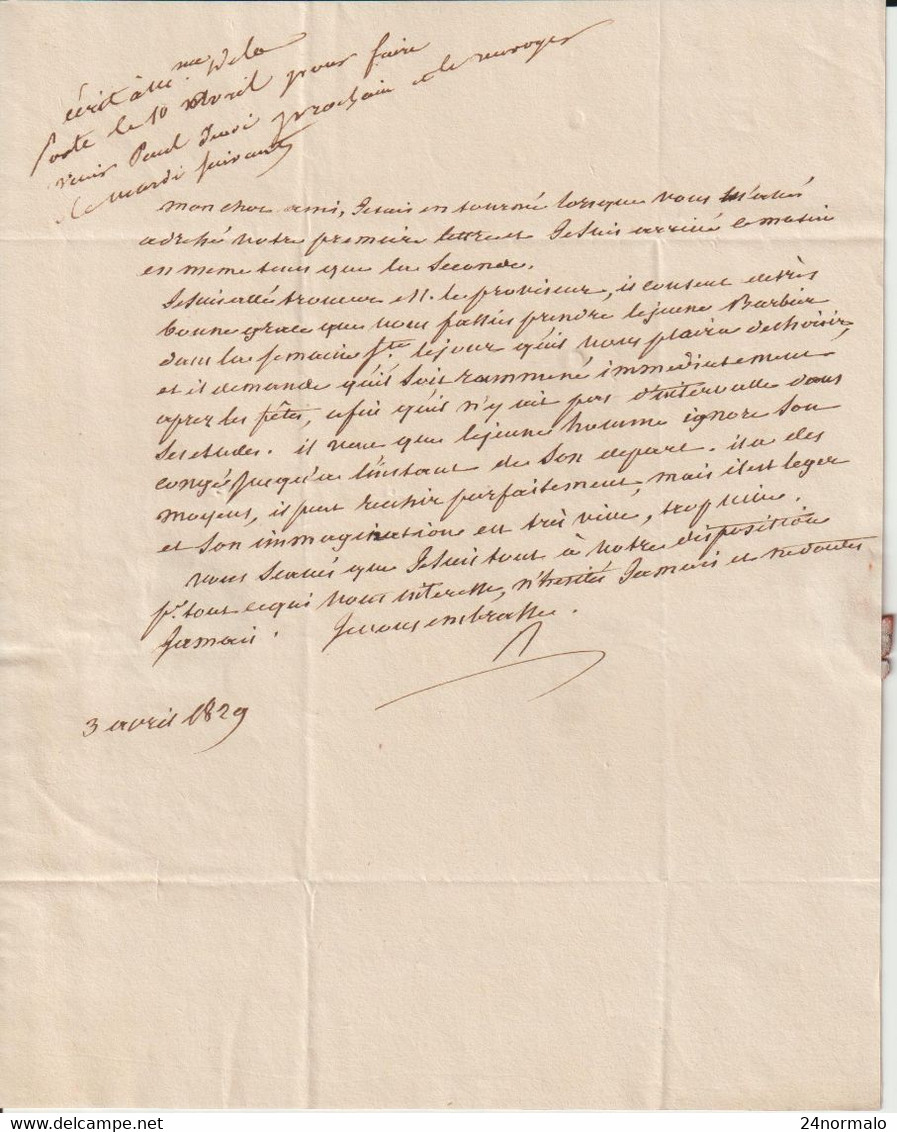 écrit à M.me De la
Porte le 10 Avril pour faire
venir Paul Jeudi prochain et le renvoyer
le mardi suivant
mon cher ami, Jetais en tourné lorsque vous m'avés
adressé votre premiere lettre et Je suis arrivé le matin
en meme tems que la seconde.
Je suis allé trouver M. le proviseur, il consent de très
bonne grace que vous fassiés prendre le jeune Barbier
dans la semaine Ste. le jour qu'il vous plaira de choisir,
et il demande qu'il soit rammené immediatement
aprez les fêtes, afin qu'il n'y ait pas d'intervalle dans
ses etudes. il veut que le jeune homme ignore son
congé jusqu'a l'instant de son depart. il a des
moyens, il peut reussir parfaitement, mais il est leger
et son immagination est très vive, trop vive.
vous savés que Je suis tout à votre disposition
pr. tout ce qui vous interesse, n'hesités Jamais et redoutés
Jamais. Je vous embrasse.
3 avril 1829
24normalo